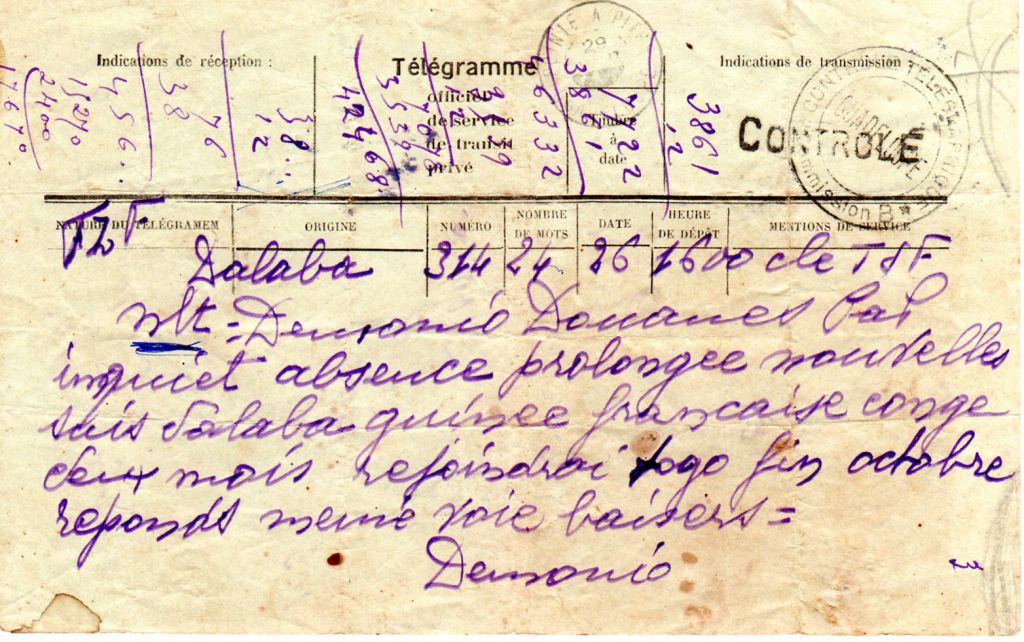 Indications de réception :
Télégramme
officiel
de service
de transit
privé
Timbre
à
date
Indications de transmission
CONTROLE
38
12
76
38
456
15270
2400
17670
42468
3861
12
NATURE DU TÉLÉGRAMME
ORIGINE
NUMÉRO
NOMBRE DE MOTS
DATE
HEURE DE DÉPÔT
MENTIONS DE SERVICE
Dalaba 314 24 26 1600 cle TSF
nlt = Demonio Douanes Pap
inquiet absence prolongee nouvelles
suis Dalaba guinee francaise conge
deux mois rejoindrai togo fin octobre
reponds meme voie baisers =
Demonio